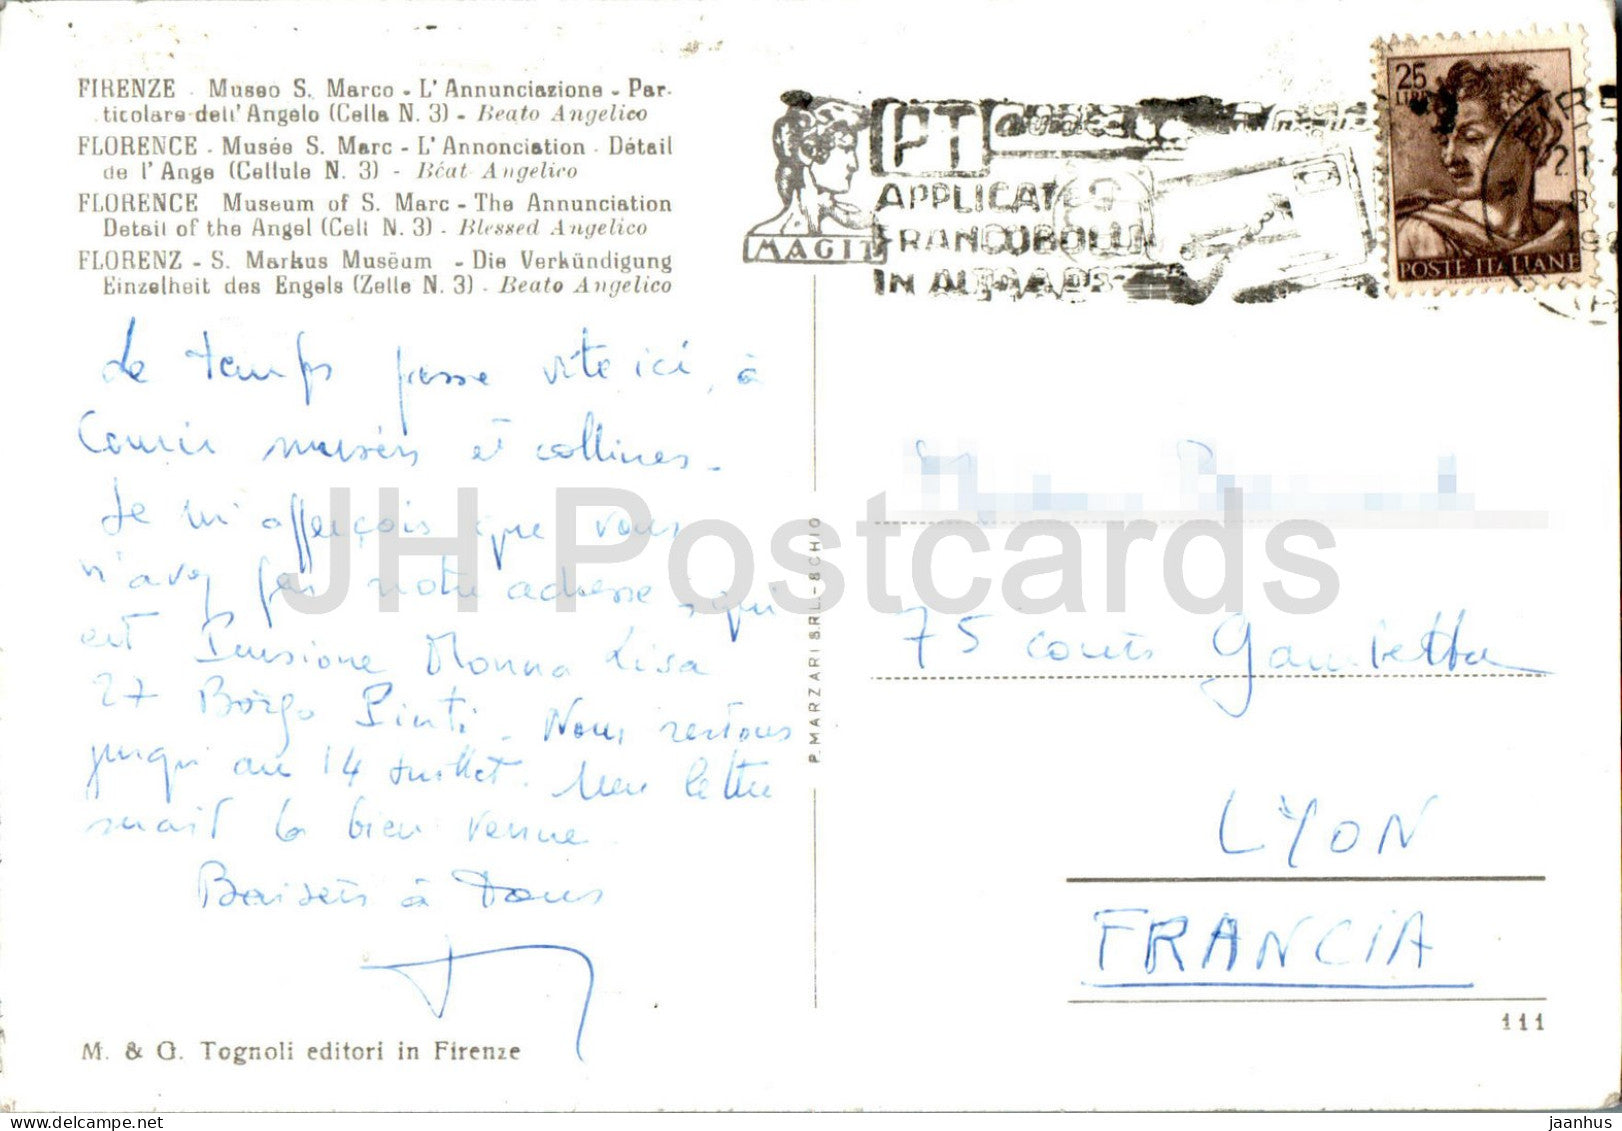 FIRENZE - Museo S. Marco - L'Annunciazione - Par-
ticolare dell'Angelo (Cella N. 3) - Beato Angelico
FLORENCE - Musée S. Marc - L'Annonciation - Détail
de l'Ange (Cellule N. 3) - Béat Angelico
FLORENCE Museum of S. Marc - The Annunciation
Detail of the Angel (Cell N. 3) - Blessed Angelico
FLORENZ - S. Markus Musëum - Die Verkündigung
Einzelheit des Engels (Zelle N. 3) - Beato Angelico
Le temps passe vite ici, à
Courir musées et collines.
Je m'aperçois que vous
n'avez pas notre adresse, qui
est Pensione Monna Lisa
27 Borgo Pinti. Nous restons
jusqu'au 14 Juillet. Une lettre
serait la bien venue.
Baisers à tous
M. & G. Tognoli editori in Firenze
P. MARZARI S.R.L. - SCHIO
MAGIT
PT
APPLICATE
FRANCOBOLLI
IN ALTO A DS
25
LIRE
POSTE ITALIANE
21
8
75 cours Gambetta
LYON
FRANCIA
111
JH Postcards
jaanhus